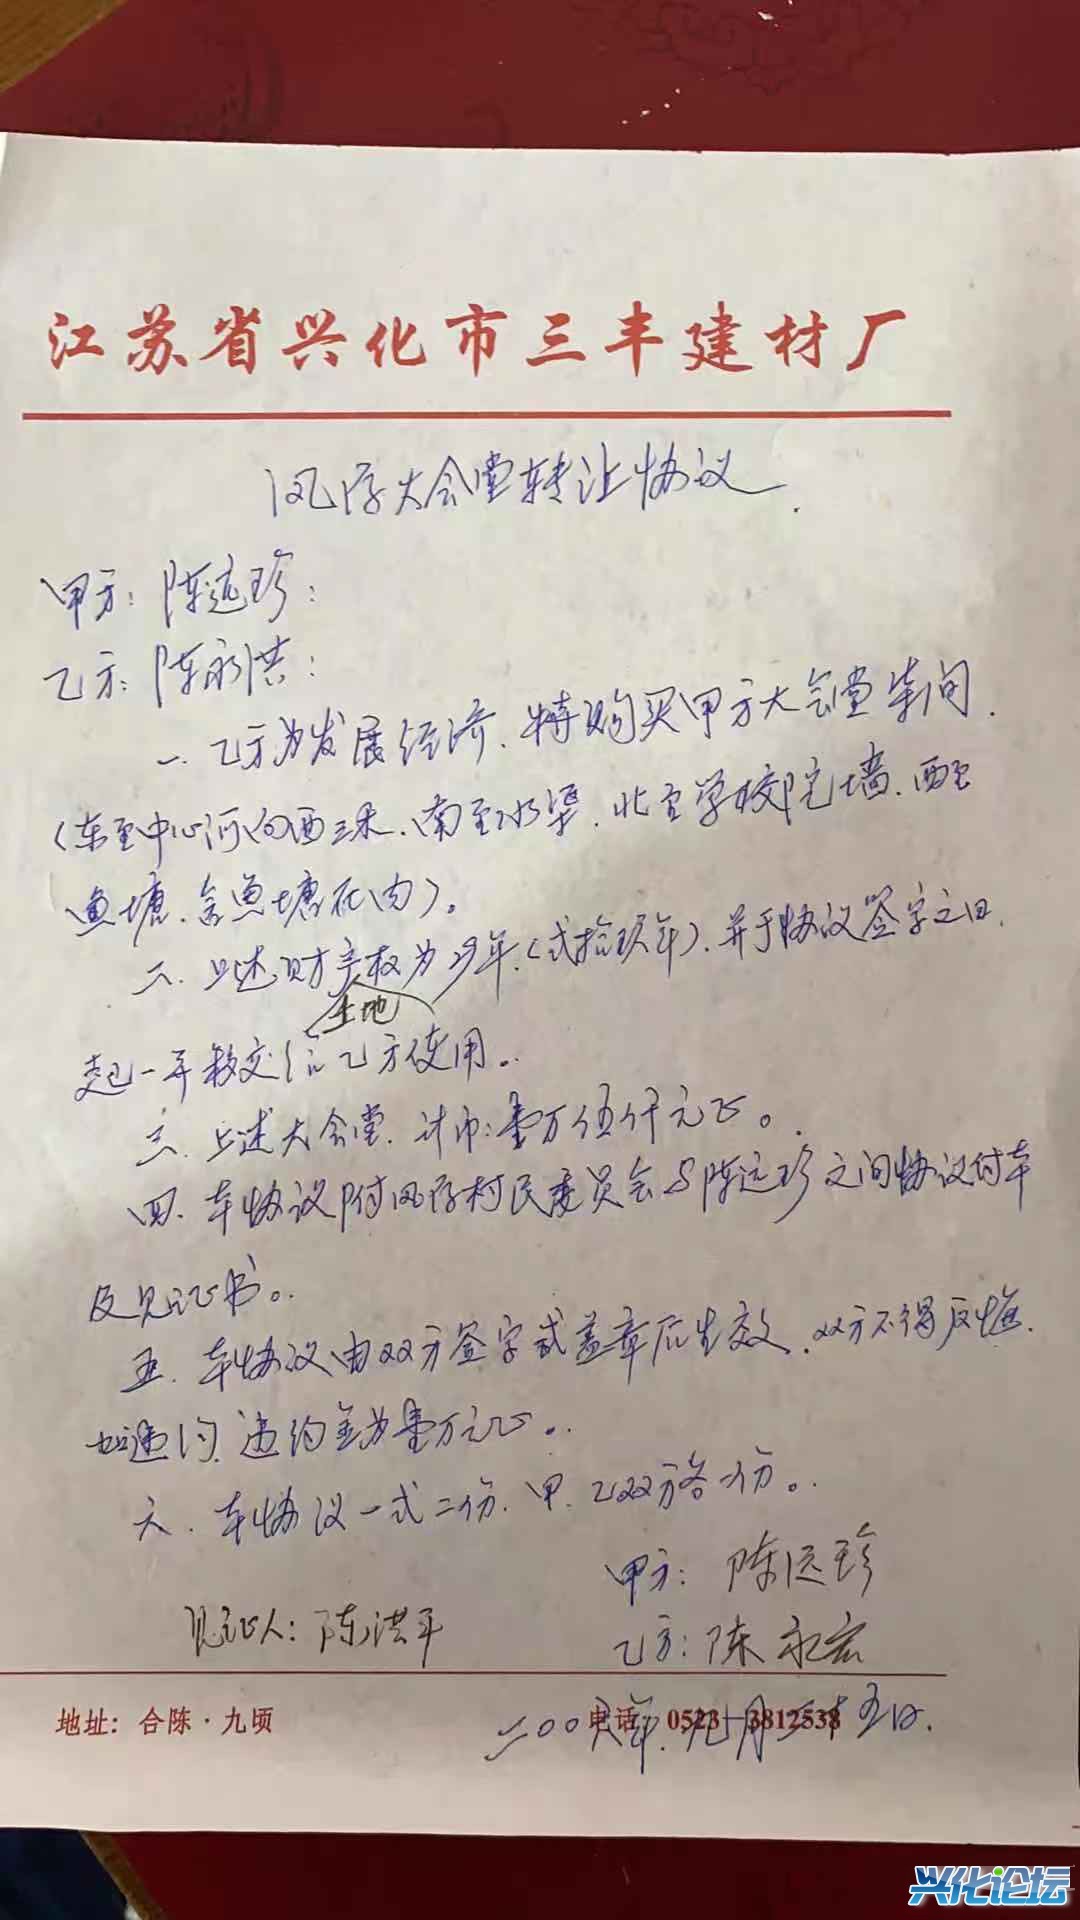 江苏省兴化市三丰建材厂
大会堂转让协议.
甲方：陈远珍：
乙方：陈永洪：
一、乙方为发展经济、特购买甲方大会堂车间、
（东至中心河向西三米、南至水渠、北至学校院墙、西至
鱼塘、含鱼塘在内）。
二、上述财产权为 年、（弍拾玖年）、并于协议签字之日、
土地
起一并移交给乙方使用。
三、上述大会堂、计币：壹万伍仟元正。
四、本协议附 村民委员会与陈远珍之间协议付本
及见证书。
五、本协议由双方签字或盖章后生效、双方不得反悔、
如违约、违约金为壹万元正。
六、本协议一式二份、甲、乙双方各一份。
甲方：陈远珍
见证人：陈洪平
乙方：陈永宏
地址：合陈·九顷
电话：0523—3812538
二００六年、九月二十五日.
兴化论坛